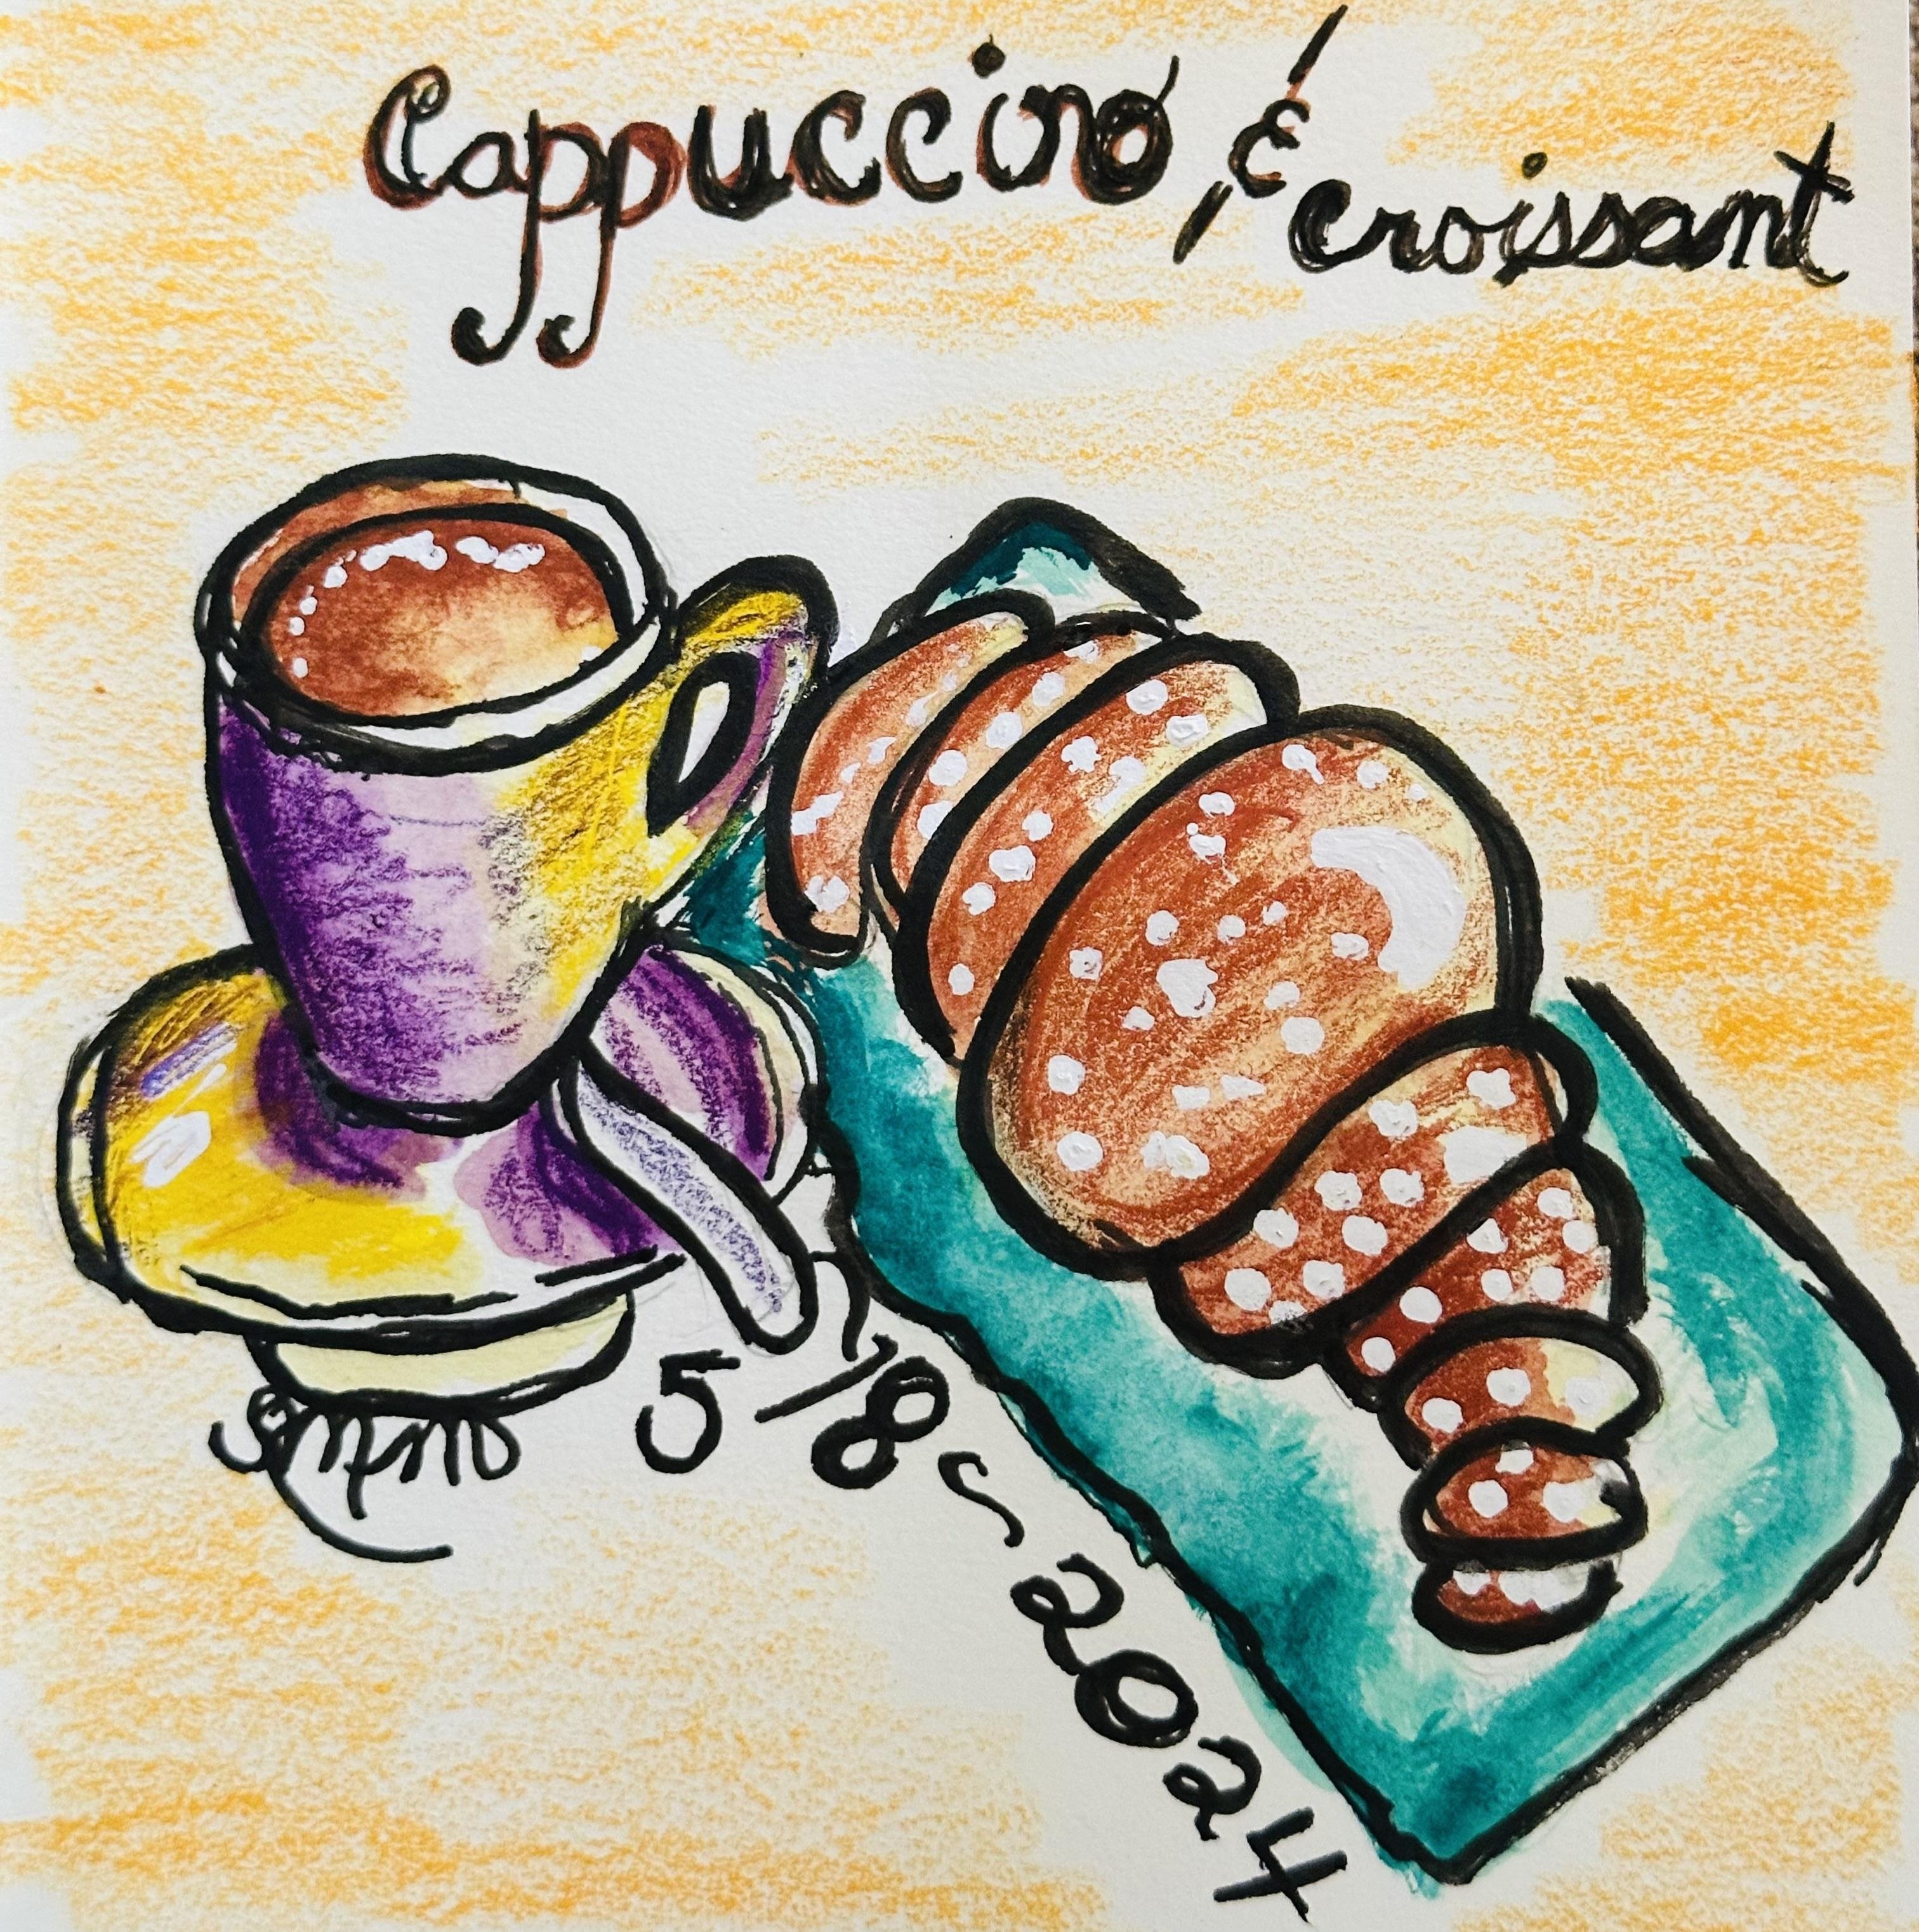 Cappuccino, &
croissant
5/18~2024